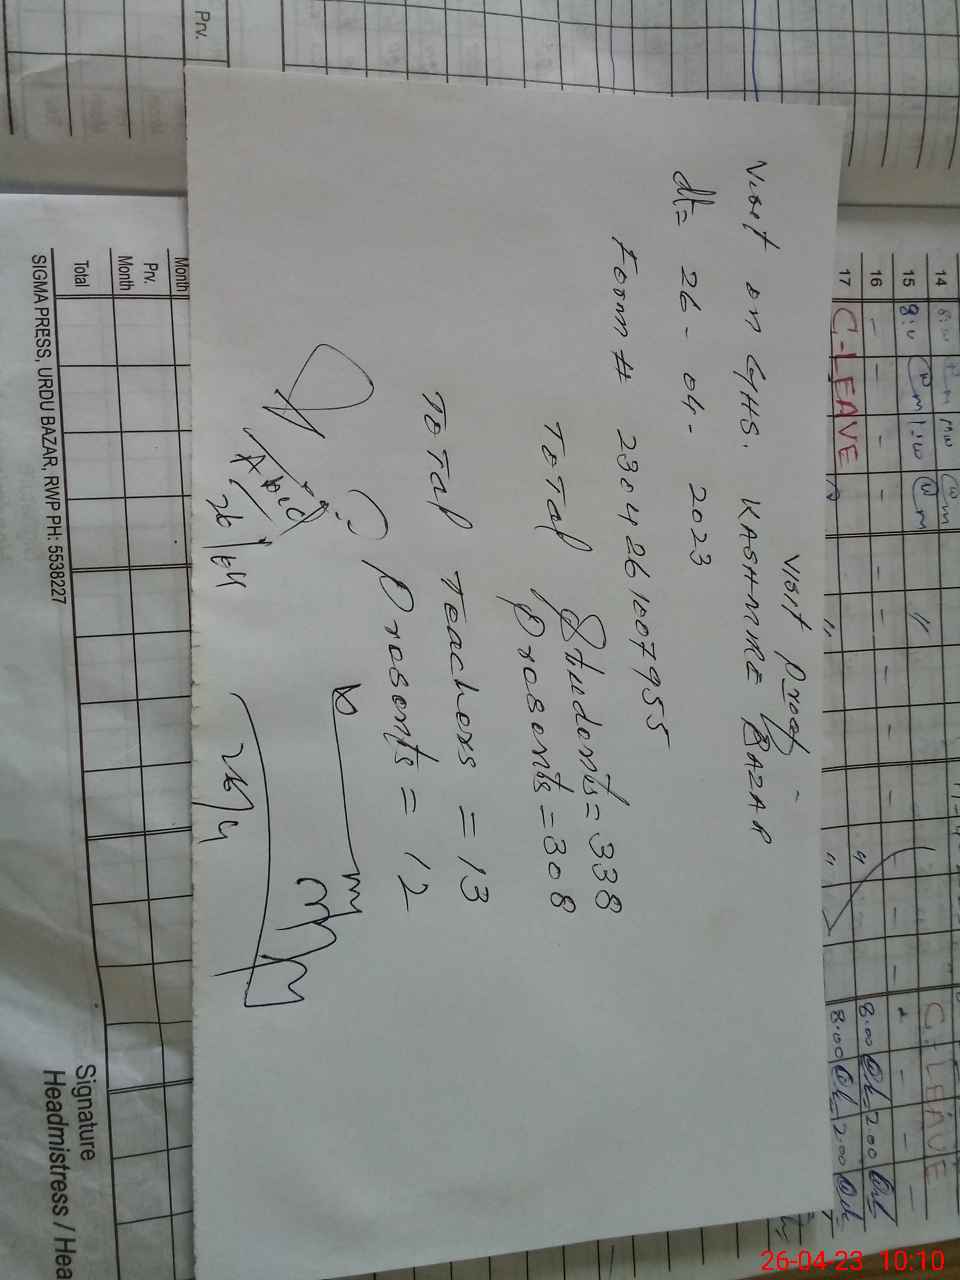 Prv.
14
15
16
17
C-LEAVE
C-LEAVE
8.00 2.00
8.00 2.00
Visit Proof
Visit on GHS. KASHMIRE BAZAR
dt= 26-04-2023
Form # 2304261007955
Total Students = 338
Presents = 308
Total Teachers = 13
Presents = 12
26/04
26/4
Month
Prv.
Month
Total
SIGMA PRESS, URDU BAZAR, RWP PH: 5538227
Signature
Headmistress / Hea
26-04-23 10:10